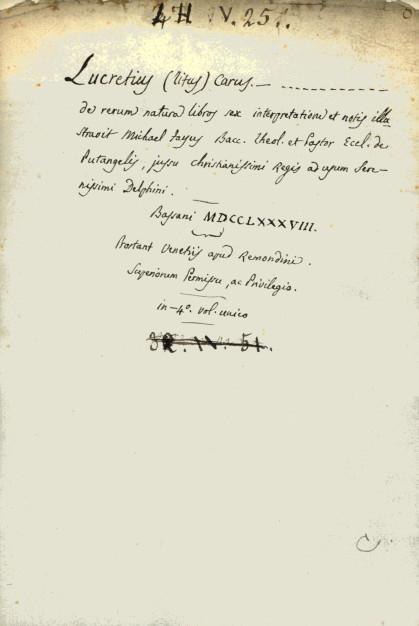 4H IV. 251.
Lucretius (Titus) Carus. —
de rerum natura libros sex interpretatione et notis illu
stravit Michael Fayus Bacc. Theol. et Pastor Eccl. de
Putangelis, jussu christianissimi Regis ad usum Sere-
nissimi Delphini.
Bassani MDCCLXXXVIII.
Prostant Venetiis apud Remondini.
Superiorum Permissu, ac Privilegio.
in-4º. vol. unico
32. IV. 51.